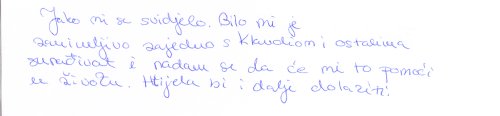 Jako mi se svidjelo. Bilo mi je
zanimljivo zajedno s Klaudiom i ostalima
surađivat i nadam se da će mi to pomoći
u životu. Htjela bi i dalje dolaziti.